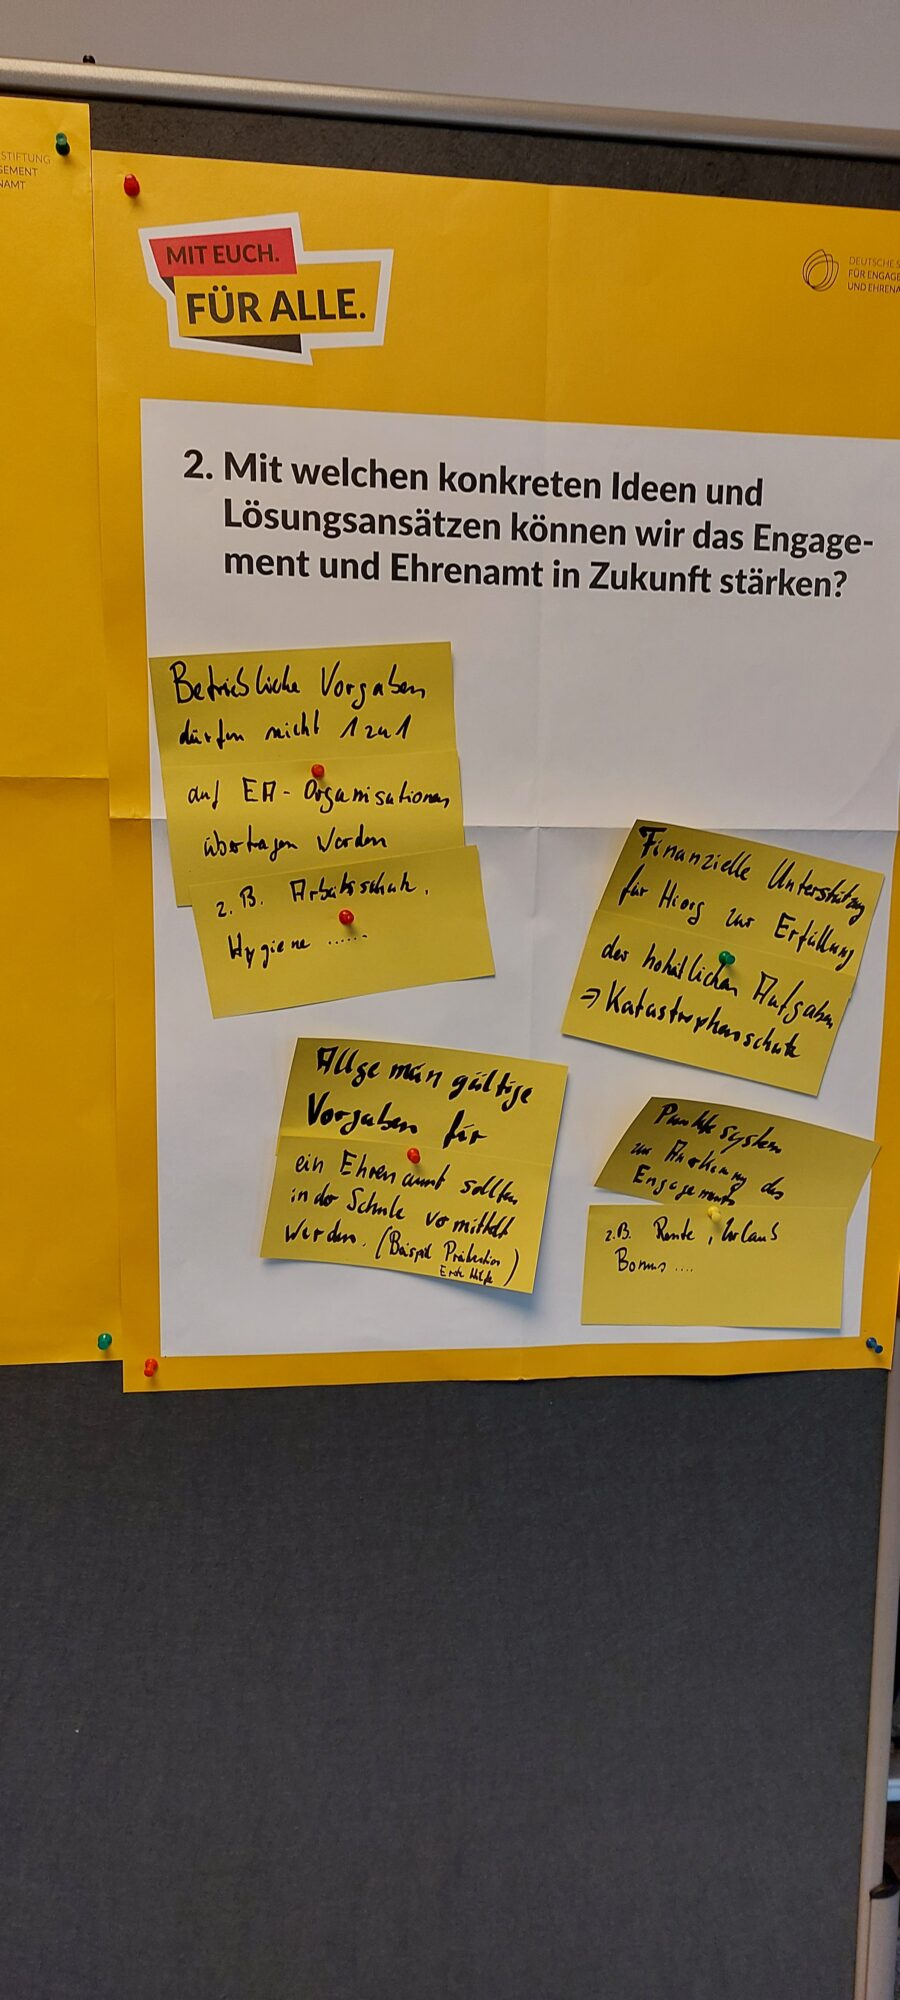 STIFTUNG
GEMENT
NAMT
MIT EUCH.
FÜR ALLE.
DEUTSCHE S
FÜR ENGAGE
UND EHRENA
2. Mit welchen konkreten Ideen und
Lösungsansätzen können wir das Engage-
ment und Ehrenamt in Zukunft stärken?
Betriebliche Vorgaben
dürfen nicht 1 zu 1
auf EA-Organisationen
übertragen werden
z.B. Arbeitsschutz,
Hygiene ......
Finanzielle Unterstützung
für Hiorg zur Erfüllung
der hoheitlichen Aufgaben
⇒ Katastrophenschutz
Allgemein gültige
Vorgaben für
ein Ehrenamt sollten
in der Schule vermittelt
werden. (Beispiel Prävention
Erste Hilfe)
Punktesystem
zur Anerkennung des
Engagements
z.B. Rente, Urlaub
Bonus ....